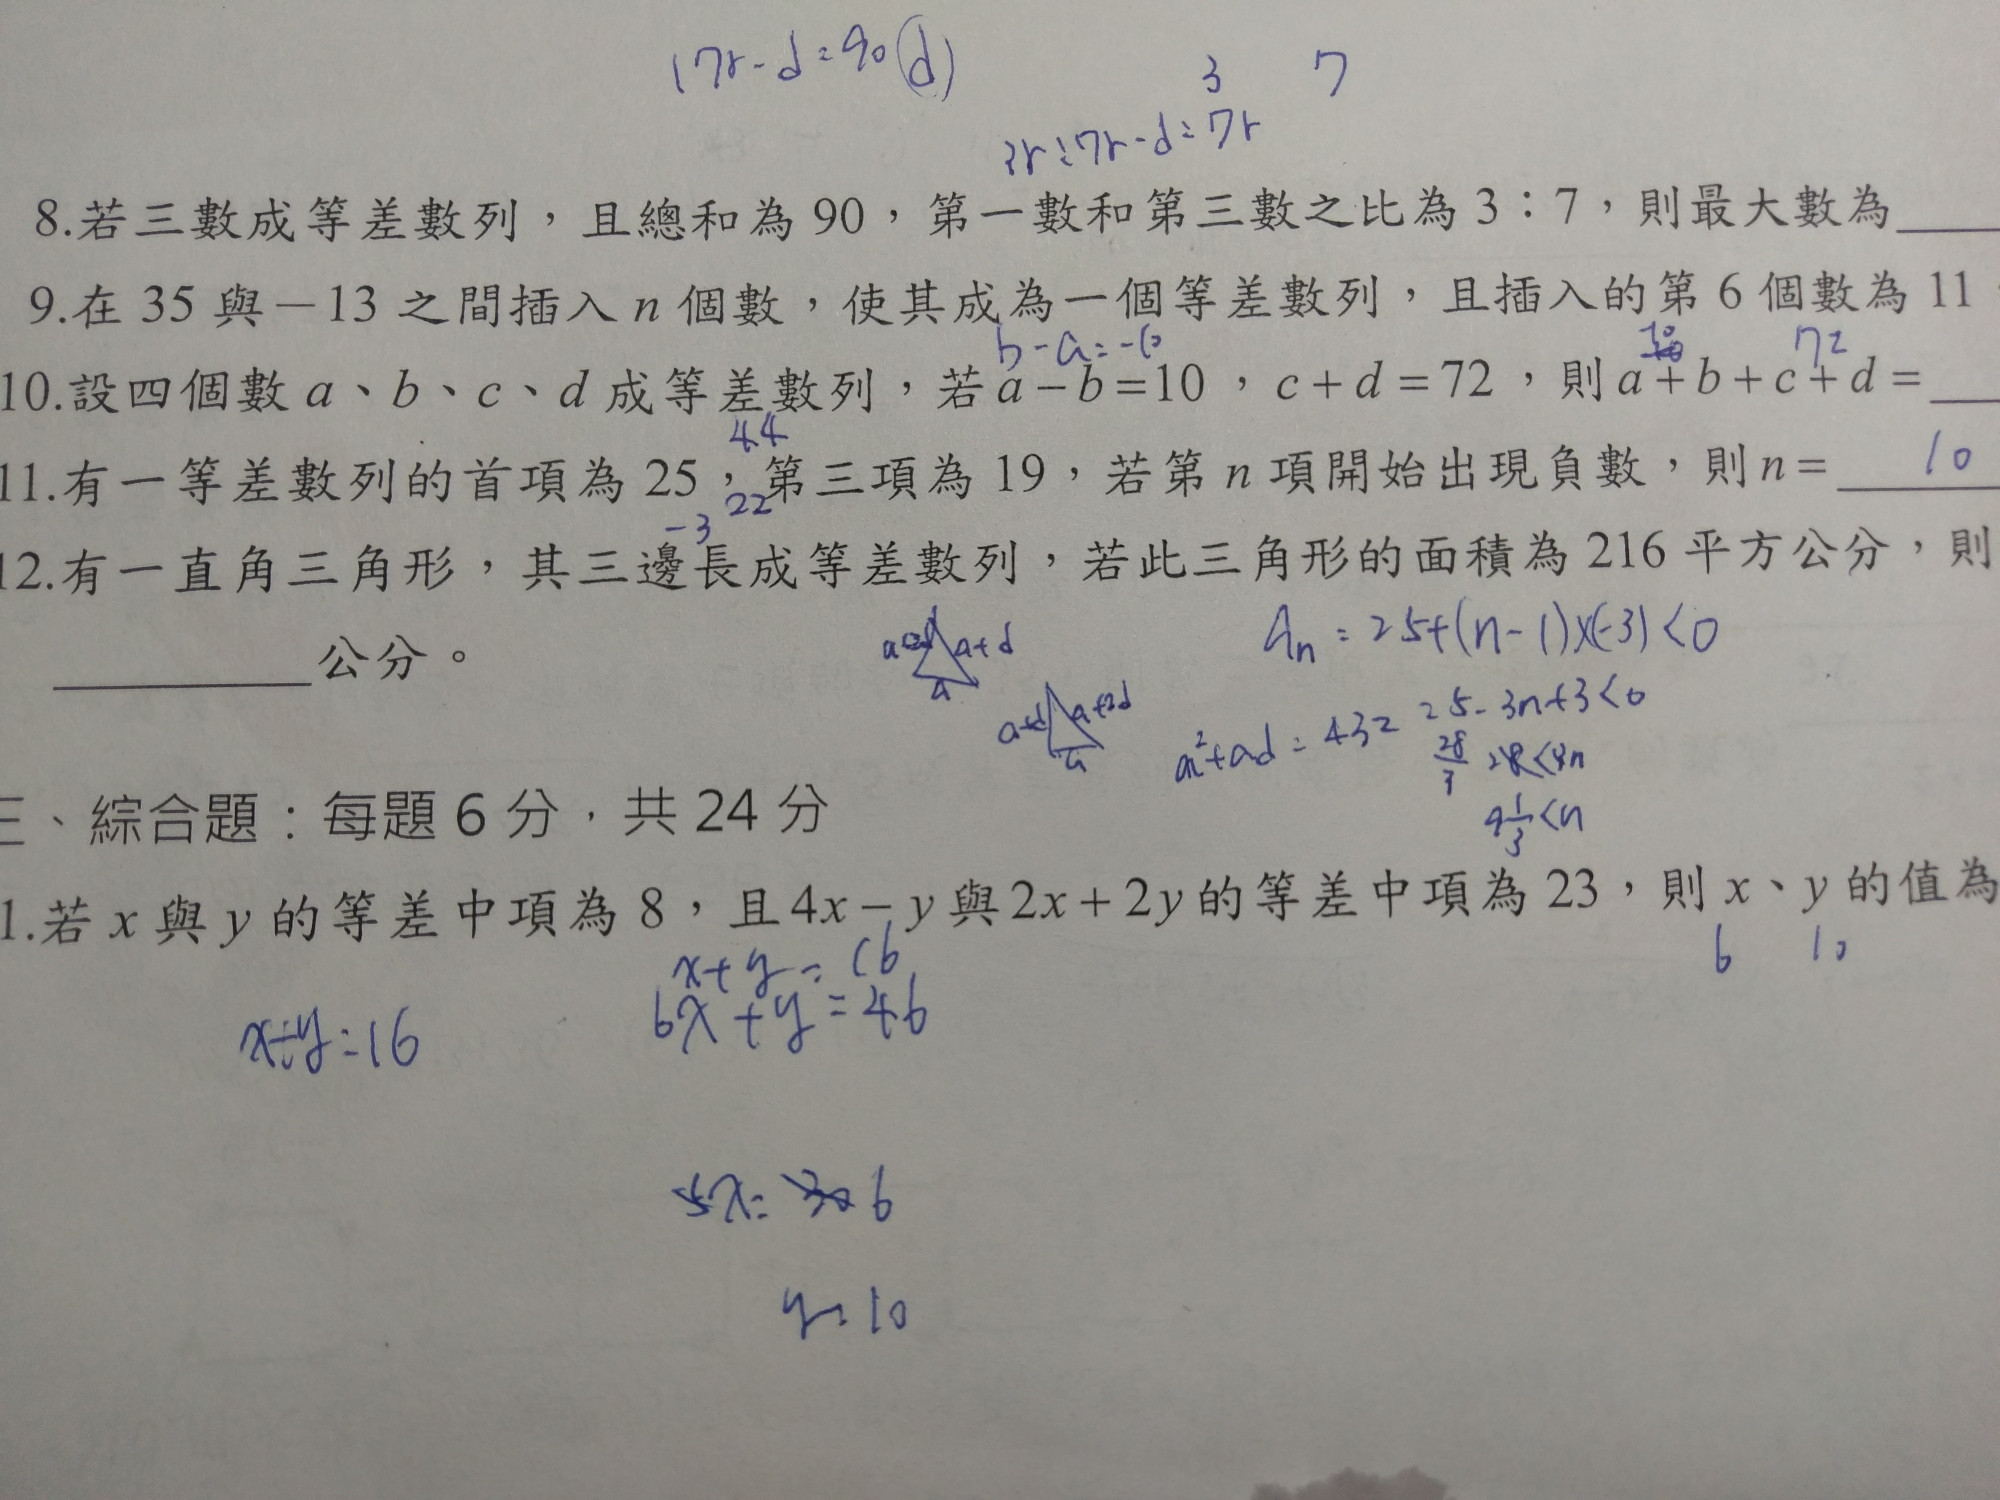 17r-d=90(d)
3 7
3r:7r-d=7r
8.若三數成等差數列，且總和為90，第一數和第三數之比為3：7，則最大數為
9.在35與－13之間插入n個數，使其成為一個等差數列，且插入的第6個數為11
b-a=-10 72
10.設四個數a、b、c、d成等差數列，若a－b＝10，c＋d＝72，則a＋b＋c＋d＝
44
11.有一等差數列的首項為25，第三項為19，若第n項開始出現負數，則n＝ 10
-3 22
12.有一直角三角形，其三邊長成等差數列，若此三角形的面積為216平方公分，則
公分。
a+d
a
An=25+(n-1)×(-3)<0
a+d a+2d
a
a²+ad=432
25-3n+3<0
28/3 28<3n
9 1/3<n
三、綜合題：每題6分，共24分
1.若x與y的等差中項為8，且4x－y與2x＋2y的等差中項為23，則x、y的值為
6 10
x+y=16
6x+y=46
x+y=16
5x=30 6
y=10